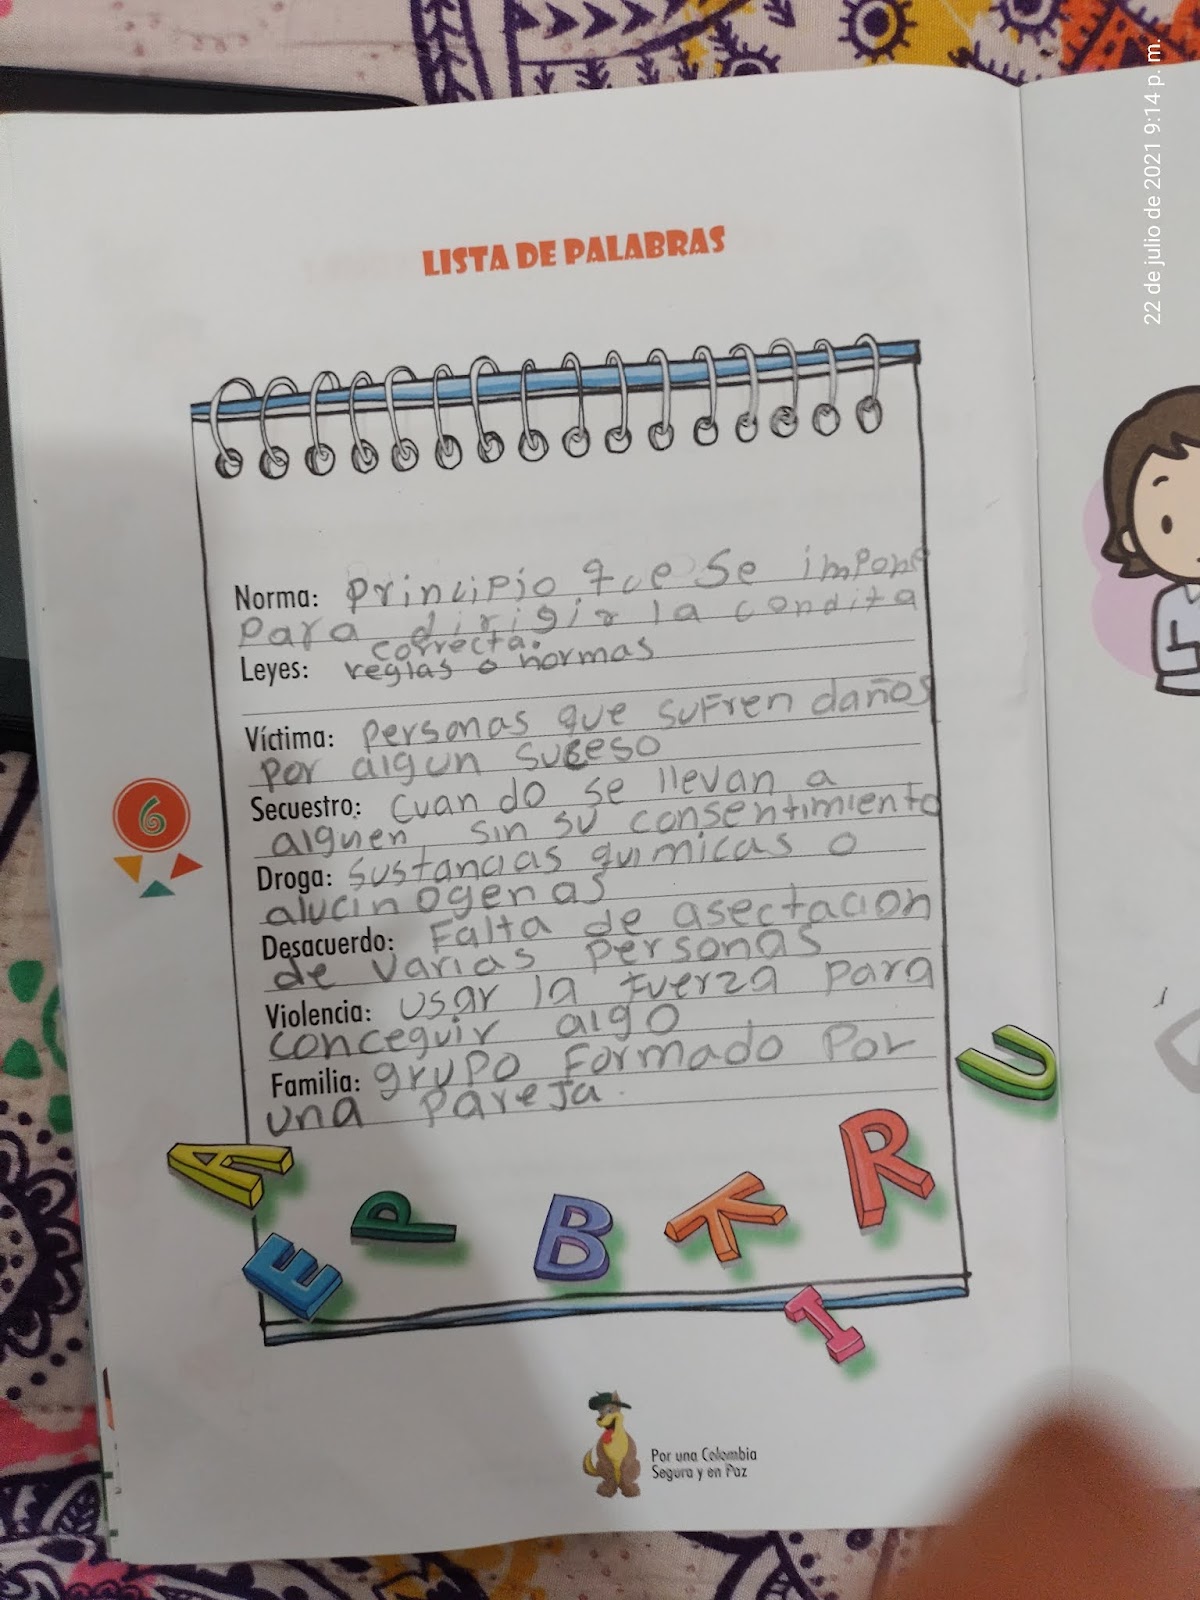 22 de julio de 2021 9:14 p. m.
LISTA DE PALABRAS
Norma: Principio que se impone
Para dirigir la condita
correcta.
Leyes: reglas o normas
Víctima: Personas que sufren daños
por algun suceso
Secuestro: Cuando se llevan a
alguen sin su consentimiento
Droga: Sustancias quimicas o
alucinogenas
Desacuerdo: Falta de asectacion
de varias personas
Violencia: usar la fuerza para
conceguir algo
Familia: grupo formado por
una pareja.
6
A
E
P
B
K
R
I
U
Por una Colombia
Segura y en Paz